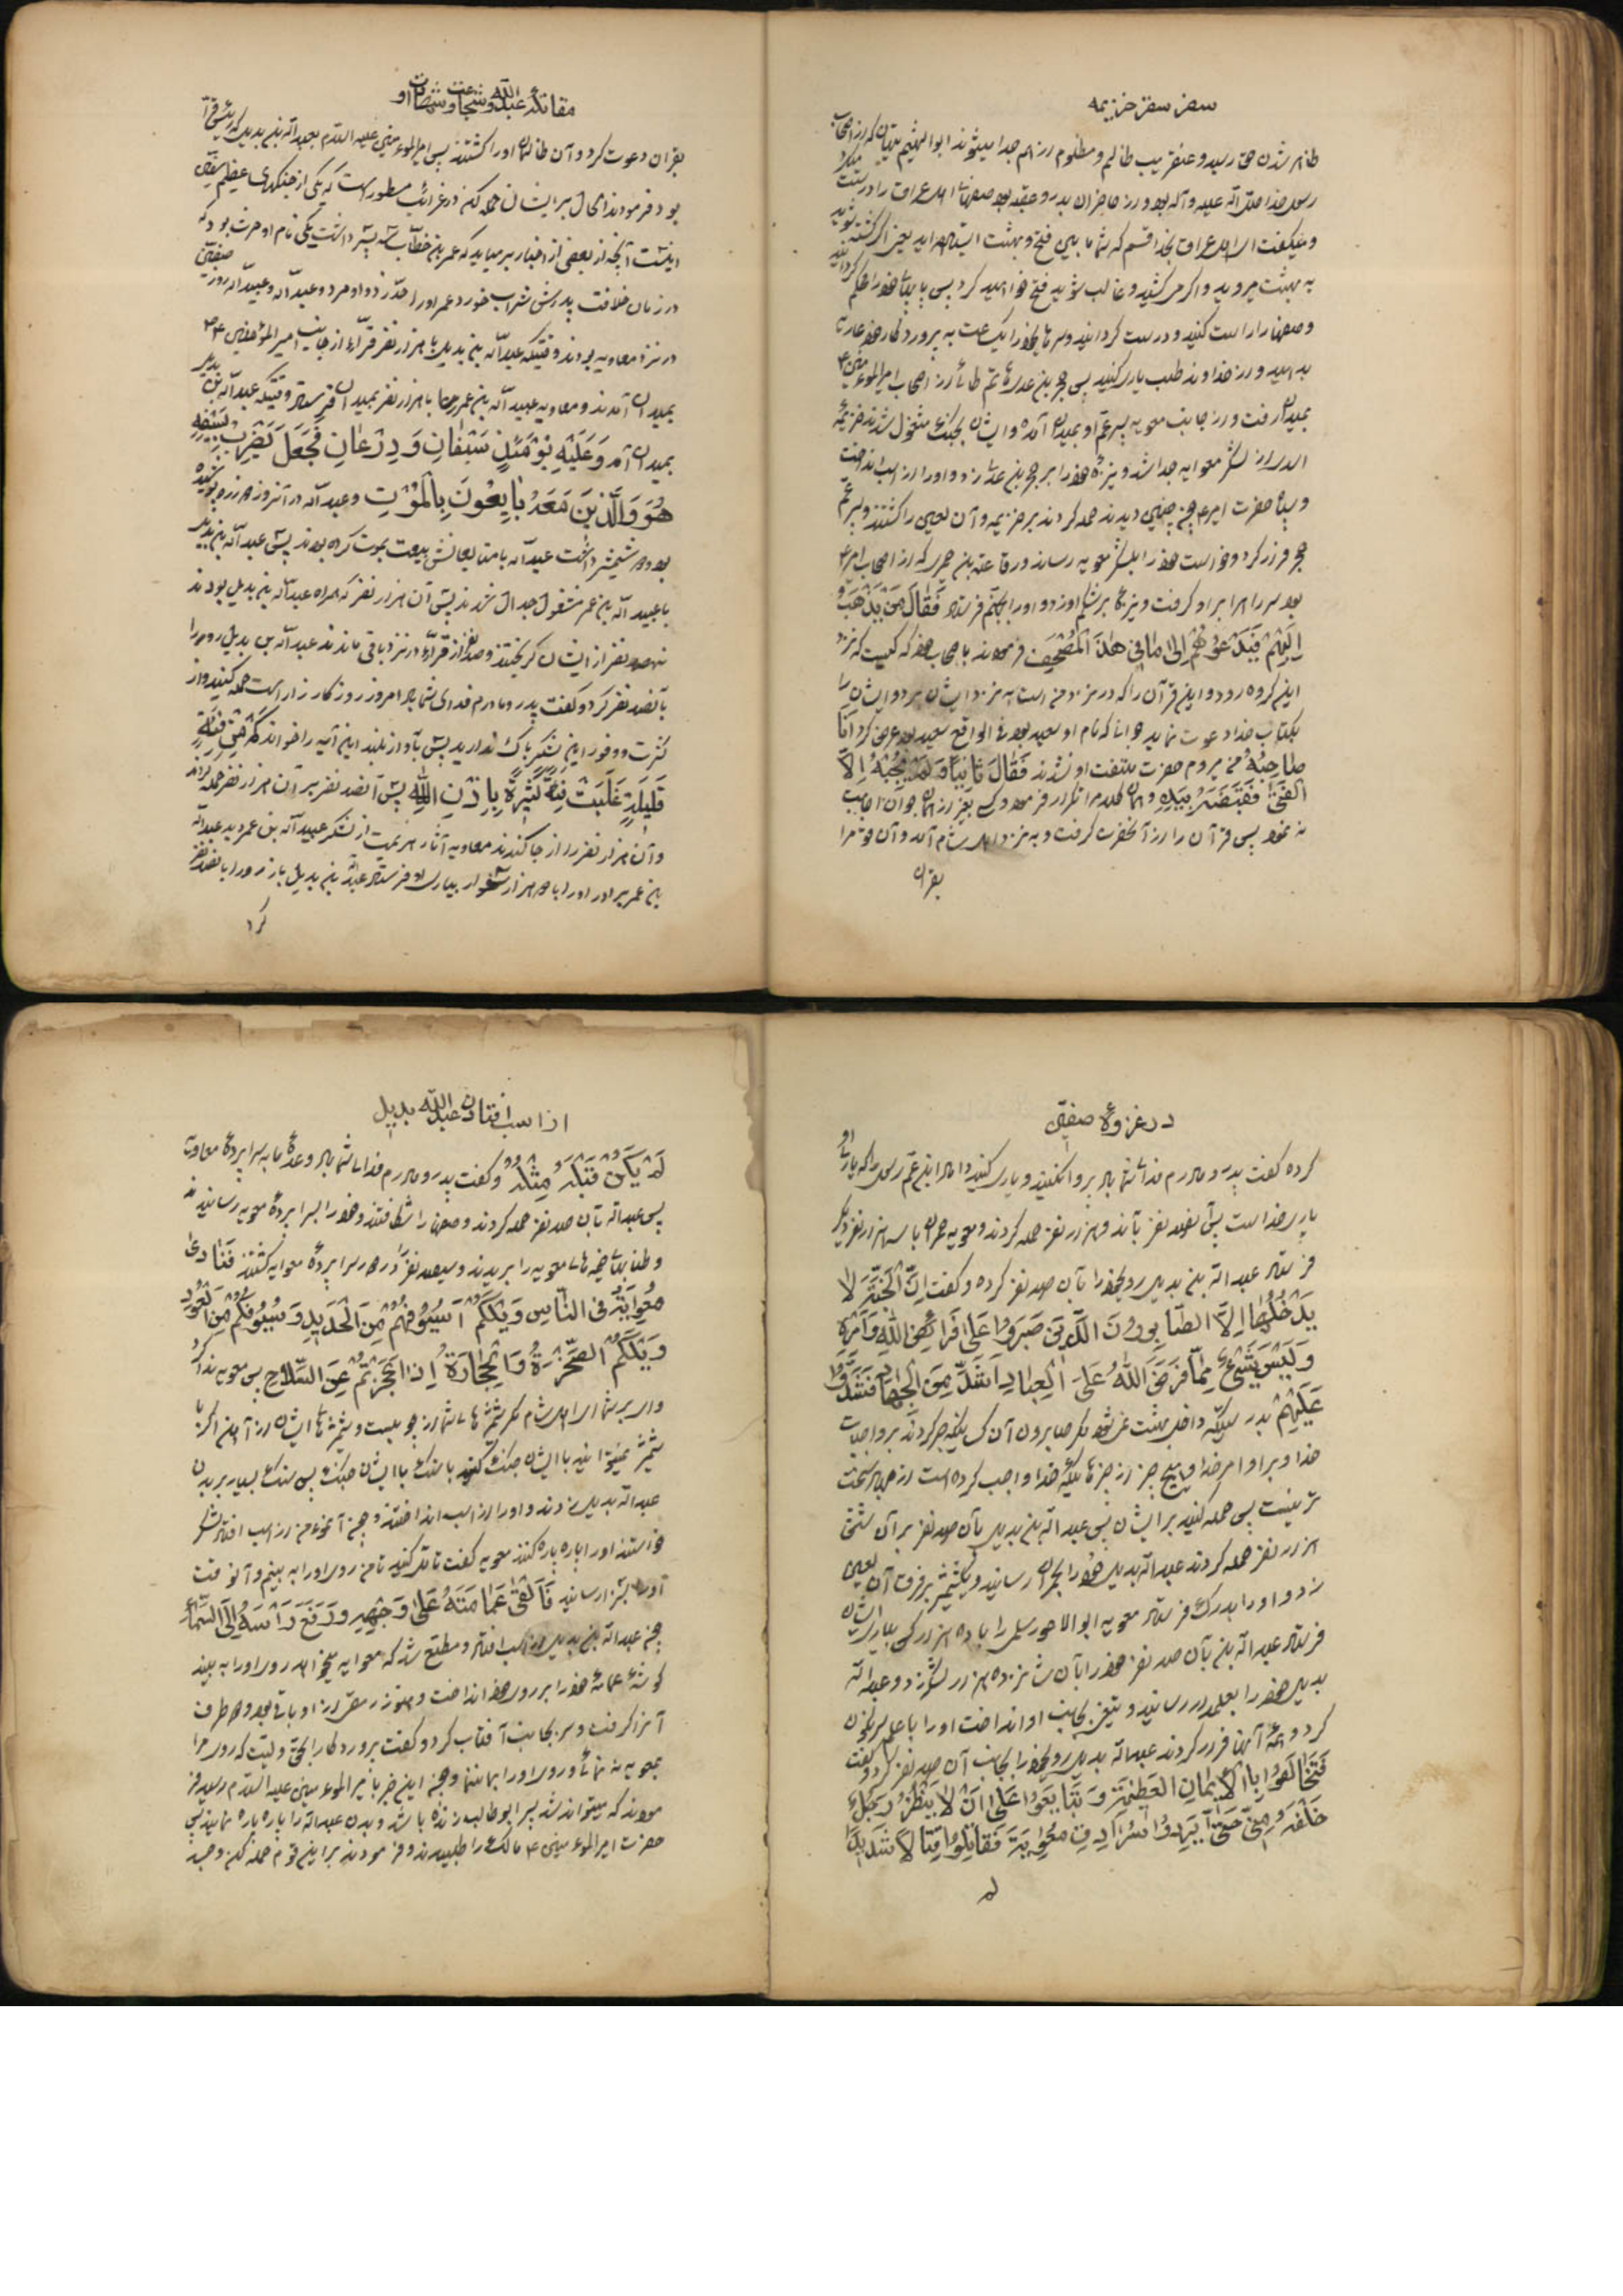 سفر سقر خزیمه
ظاهر شدن حق رسید و عنقریب ظالم و مظلوم از هم جدا میشوند ابوالهیثم تیهان که از اصحاب
رسول خدا صلی الله علیه وآله بود و از حاضران بدر و عقبه بود صفهای اهل عراق را درست میکرد
و میگفت ای اهل عراق بخدا قسم که شما بین فتح و بهشت ایستاده اید یعنی اگر کشته شوید
به بهشت میروید و اگر میکشید و غالب شوید فتح خواهید کرد پس پایهای خود را محکم گردانید
و صفها را راست کنید و درست گردانید و سرهای خود را یکساعت به پروردگار خود عاریه
بدهید و از خداوند طلب یاری کنید پس حجر بن عدی حاتم طائی از اصحاب امیرالمؤمنین ع
بمیدان رفت و از جانب معویه پسر عم او بمیدان آمده و ایشان بجنگ مشغول شدند خزیمه
اسدی از لشگر معوایه جدا شد و نیزه خود را بر حجر بن عدی زد و او را از اسب انداخت
و سپاه حضرت امیر ع چون چنین دیدند حمله کردند بر خزیمه و آن لعین را کشتند و پسر عم
حجر فرار کرد و خواست خود را بلشگر معویه رساند ورقا عتبه بن حمیری که از اصحاب امیر ع
بود سر راه را بر او گرفت و نیزه بر شکم او زد و او را بجهنم فرستاد فَقٰالَ مَنْ یَذْهَبُ
اِلَیْهِمْ فَیَدْعُوهُمْ اِلیٰ مٰا فِی هٰذَ الْمُصْحَفِ فرمودند باصحاب خود که کیست که نزد
این گروه رود و این قرآن را که در نزد من است به نزد ایشان برد و ایشان را
بکتاب خدا دعوت نماید جوانی که نام او سعید بود فی الواقع سعید بود عرض کرد اَنَا
صٰاحِبُهُ من میروم حضرت ملتفت او نشدند فَقٰالَ ثٰانِیًا وَ لَمْ یُجِبْهُ اِلّٰا
الْفَتیٰ فَقَبَضَهُ بِیَدِهِ و همان کلام را تکرار فرمود و کسی بغیر از همان جوان اجابت
ننمود پس قرآن را از آنحضرت گرفت و به نزد اهل شام آمد و آن قوم را
بقران
مقاتله عبدالله و شجاعت و شهادت او
بقران دعوت کرد و آن ظالمان او را کشتند پس امیرالمؤمنین علیه السلام بعبدالله بن بدیل که رئیس قرّاء
بود فرمودند الحال بر ایشان حمله کن در غرائب مسطور است که یکی از جنگهای عظیم صفین
اینست آنچه از بعضی از اخبار بر میاید که عمر بن خطاب سه پسر داشت یکی نام او حرث بود که
در زمان خلافت پدرش شراب خورد عمر او را حدّ زد و او مرد و عبدالله و عبیدالله روز صفین
در نزد معاویه بودند وقتیکه عبدالله بن بدیل با هزار نفر قرّاء از جانب امیرالمؤمنین ع
بمیدان آمدند و معاویه عبیدالله بن عمر را با هزار نفر بمیدان فرستاد وقتیکه عبدالله بن بدیل
بمیدان آمد وَ عَلَیْهِ یَوْمَئِذٍ سَیْفٰانِ وَ دِرْعٰانِ فَجَعَلَ یَضْرِبُ بِسَیْفِهِ
هُوَ وَالَّذینَ مَعَهُ بٰایِعُونَ بِالْمَوْتِ و عبدالله در آنروز دو زره پوشیده
بود و دو شمشیر داشت عبدالله با متابعانش بیعت بموت کرده بودند پس عبدالله بن بدیل
با عبیدالله بن عمر مشغول جدال شدند پس آن هزار نفر که همراه عبدالله بن بدیل بودند
نهصد نفر از ایشان گریختند و صد نفر از قرّاء در نزد باقی ماندند عبدالله بن بدیل رو را
بآنصد نفر کرد و گفت پدر و مادرم فدای شما باد امروز روز کارزار است حمله کنید و از
کثرت و وفور این لشگر باک ندارید پس بآواز بلند این آیه را خواند کَمْ مِنْ فِئَةٍ
قَلیلَةٍ غَلَبَتْ فِئَةً کَثِیرَةً بِاِذْنِ اللّٰهِ پس آنصد نفر بر آن هزار نفر حمله کردند
و آن هزار نفر را از جا کندند معاویه آثار هزیمت از لشگر عبیدالله بن عمر دید عبدالله
بن عمر برادر او را با دو هزار سوار بیاری او فرستاد عبدالله بن بدیل باز رو را بآنصد نفر
کرد
در غزوهٔ صفین
کرده گفت پدر و مادرم فدای شما باد پروا نکنید و یاری کنید داماد و ابن عم رسول را که یاری او
یاری خدا است پس آنصد نفر بآن دو هزار نفر حمله کردند و معویه حمران با سه هزار نفر دیگر
فرستاد عبدالله بن بدیل رو بخود را بآن صد نفر کرده و گفت اِنَّ الْجَنَّةَ لٰا
یَدْخُلُهٰا اِلَّا الصّٰابِرُونَ الَّذینَ صَبَرُوا عَلیٰ فَرٰائِضِ اللّٰهِ وَ اَمْرِهِ
وَ لَیْسَ شَیْءٌ مِمّٰا فَرَضَ اللّٰهُ عَلَی الْعِبٰادِ اَشَدَّ مِنَ الْجِهٰادِ فَشَدُّوا
عَلَیْهِمْ بدرستیکه داخل بهشت نمیشود مگر صابرون آن کسانیکه صبر کردند بر واجبات
خدا و بر اوامر خدا و هیچ چیز از چیزهائیکه خدا واجب کرده است از جهاد سخت
تر نیست پس حمله کنید بر ایشان پس عبدالله بن بدیل بآن صد نفر بر آن شش
هزار نفر حمله کردند عبدالله بدیل خود را بحمران رسانید و شمشیر بر فرق آن لعین
زد و او را بدرک فرستاد معویه ابوالاعور سلمی را با ده هزار کس بیاری ایشان
فرستاد عبدالله بن بآن صد نفر خود را بآن شانزده هزار لشگر زد و عبدالله
بدیل خود را بعلمدار رسانید و تیغی بجانب او انداخت او را با علم سرنگون
کرد و همه آنها فرار کردند عبدالله بدیل رو بخود را بجانب آن صد نفر کرد و گفت
فَتَحٰالَفُوا بِالْاَیْمٰانِ الْعَظیمَةِ وَ تَبٰایَعُوا عَلیٰ اَنْ لٰا یَنْظُرُ رَجُلٌ
خَلْفَهُ مِنّٰی حَتّیٰ یَرِدُوا سُرٰادِقَ مُعٰوِیَةَ فَقٰاتِلُوا قِتٰالًا شَدیدًا
لم
از اسب افتادن عبدالله بدیل
لَمْ یَکُنْ قَبْلَهُ مِثْلُهُ و گفت پدر و مادرم فدای شما باد وعدهٔ ما به سراپردهٔ معاویه
پس عبدالله بآن صد نفر حمله کردند و صفها را شکافتند و خود را بسراپردهٔ معویه رسانیدند
و طنابهای خیمه های معویه را بریدند و سیصد نفر را در دور سراپردهٔ معوایه کشتند فَنٰادیٰ
مُعٰوِیَةُ فِی النّٰاسِ وَیْلَکُمْ اَسْیُوفُهُمْ مِنَ الْحَدیدِ وَ سُیُوفُکُمْ مِنَ الْعُودِ
وَیْلَکُمُ الصَّخْرَةُ وَ الْحِجٰارَةُ اِذٰا عَجَزْتُمْ عَنِ السِّلٰاحِ پس معویه ندا کرد
وای بر شما ای اهل شام مگر شمشیرهای شما از چوبست و شمشیرهای ایشان از آهن اگر با
شمشیر نمیتوانید با ایشان جنگ کنید با سنگ با ایشان جنگ پس سنگ بسیار بر بدن
عبدالله بدیل زدند و او را از اسب انداختند و چون آنمؤمن از اسب افتاد لشگر
خواستند او را پاره پاره کنند معویه گفت تأمل کنید تا من روی او را به بینم و آنوقت
او را بقتل رسانید فَاَلْقیٰ عَمٰامَتَهُ عَلیٰ وَجْهِهِ وَ رَفَعَ رَأْسَهُ اِلَی السَّمٰاءِ
چون عبدالله بن بدیل از اسب افتاد و مطلع شد که معوایه میخواهد روی او را به بیند
گوشهٔ عمامهٔ خود را بر روی خود انداخت و هنوز رمقی از او باقی بود و دو طرف
آنرا گرفت و سر بجانب آفتاب کرد و گفت پروردگارا بحق ولیت که روی مرا
بمعویه ننمائی و روی او را بمن ننما و چون این خبر بامیرالمؤمنین علیه السلام رسید فر
مودند که میتواند شد پسر ابوطالب زنده باشد و بدن عبدالله را پاره پاره نمایند پس
حضرت امیرالمؤمنین ع مالک را طلبیدند و فرمودند بر این قوم حمله کن و جسد